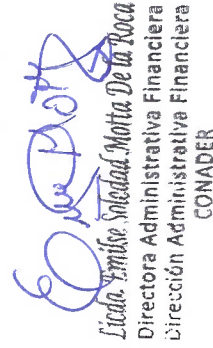 Licda. Emilse Soledad Motta De la Roca
Directora Administrativa Financiera
Dirección Administrativa Financiera
CONADER